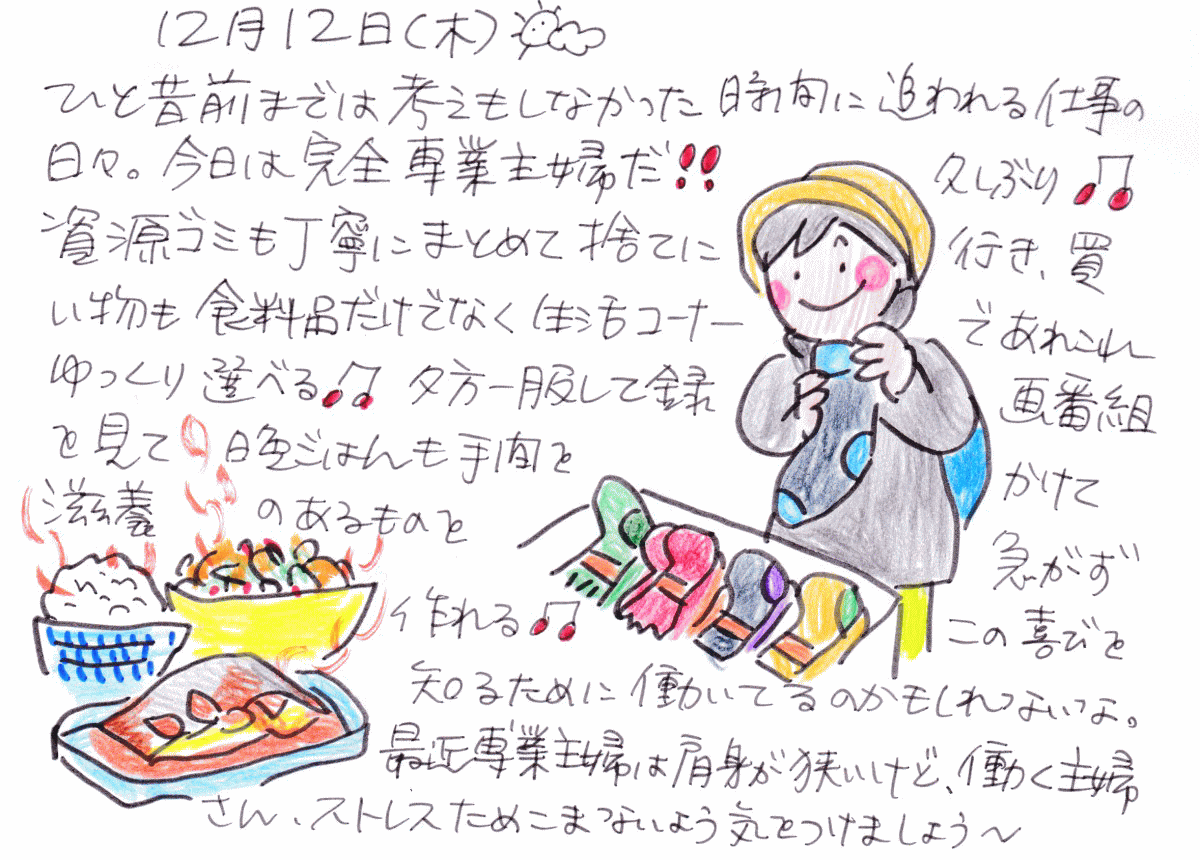 12月12日(木)
ひと昔前までは考えもしなかった時間に追われる仕事の
日々。今日は完全専業主婦だ!! 久しぶり♫
資源ゴミも丁寧にまとめて捨てに行き、買
い物も食料品だけでなく生活コーナーであれこれ
ゆっくり選べる♫ 夕方一服して録画番組
を見て晩ごはんも手間をかけて
滋養のあるものを急がず
作れる♫ この喜びを
知るために働いてるのかもしれないな。
最近専業主婦は肩身が狭いけど、働く主婦
さん、ストレスためこまないよう気をつけましょう〜